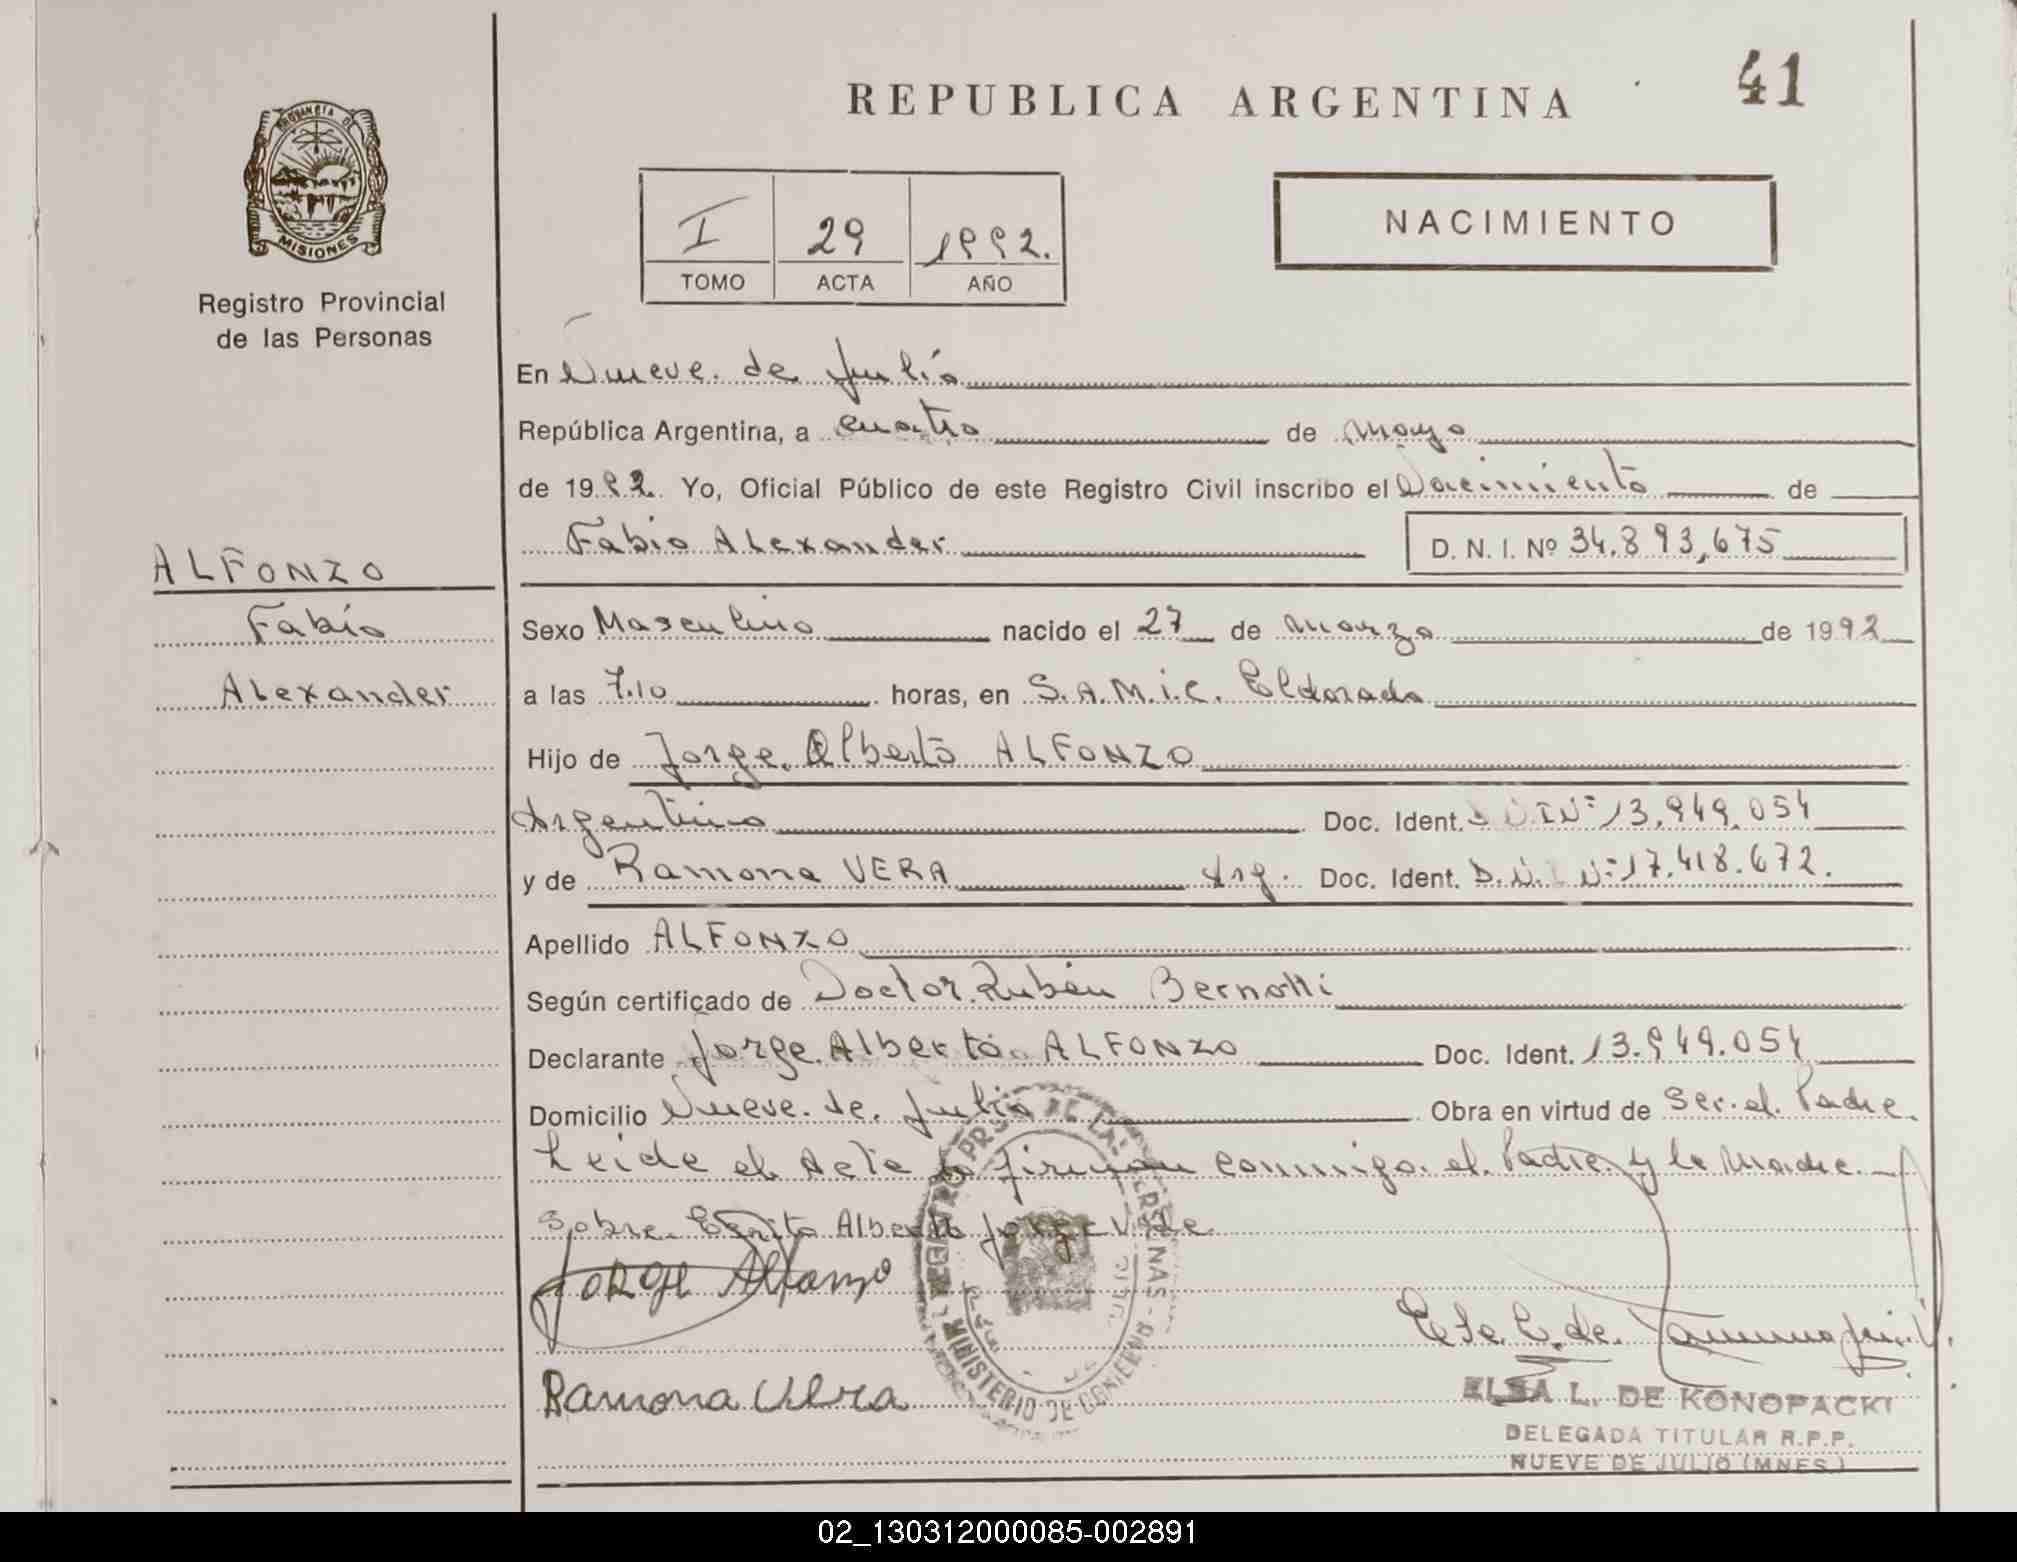 41
REPUBLICA ARGENTINA
PROVINCIA DE
MISIONES
Registro Provincial
de las Personas
I 29 1992.
TOMO ACTA AÑO
NACIMIENTO
En Nueve de Julio
República Argentina, a cuatro de Mayo
de 1992. Yo, Oficial Público de este Registro Civil inscribo el Nacimiento de
Fabio Alexander D. N. I. Nº 34.893,675
ALFONZO
Fabio
Alexander
Sexo Masculino nacido el 27 de Marzo de 1992
a las 7.10 horas, en S.A.M.i.C. Eldorado
Hijo de Jorge Alberto ALFONZO
Argentino Doc. Ident. D N I Nº 13.949.054
y de Ramona VERA Arg. Doc. Ident. D.N.I Nº 17.418.672.
Apellido ALFONZO
Según certificado de Doctor Rubén Bernotti
Declarante Jorge Alberto ALFONZO Doc. Ident. 13.949.054
Domicilio Nueve de Julio Obra en virtud de Ser el Padre.
Leida el Acta la firman conmigo el Padre y la Madre.
Sobre Escrito Alberto Jorge Vale
Jorge Alfonzo
Ramona Vera
MINISTERIO DE GOBIERNO
ELSA L. DE KONOPACKI
DELEGADA TITULAR R.P.P.
NUEVE DE JULIO (MNES.)
02_130312000085-002891